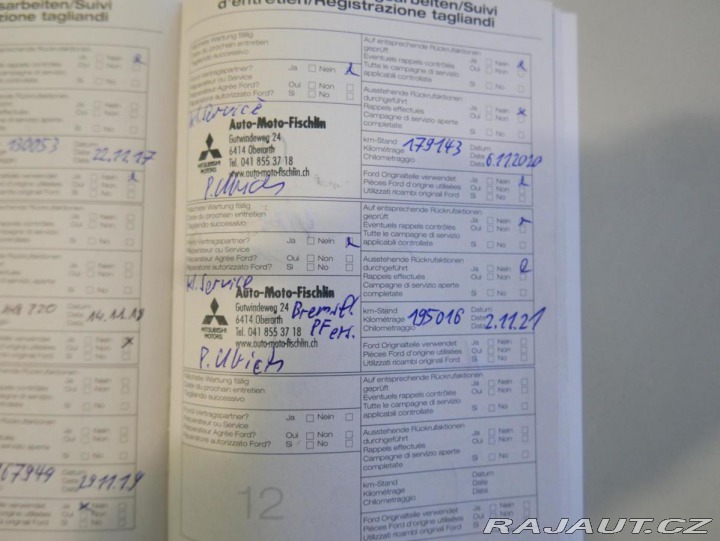 sarbeiten/Suivi
d'entretien/Registrazione tagliandi
zione tagliandi
Rückrufaktionen
Ja Nein
rappels contrôlés Oui Non
Si No
130053
22.11.17
14.11.18
167949
29.11.19
Nächste Wartung fällig
Date du prochain entretien
Tagliando successivo
Ford Vertragspartner? Ja Nein
Réparateur ou Service
Réparateur Agréé Ford? Oui Non
Riparatore autorizzato Ford? Si No
kl. Service
Auto-Moto-Fischlin
Gutwindeweg 24
6414 Oberarth
Tel. 041 855 37 18
www.auto-moto-fischlin.ch
MITSUBISHI
MOTORS
P. Ulrich
Auf entsprechende Rückrufaktionen
geprüft Ja Nein
Eventuels rappels contrôlés Oui Non
Tutte le campagne di servizio
applicabili controllate Si No
Ausstehende Rückrufaktionen
durchgeführt Ja Nein
Rappels effectués Oui Non
Campagne di servizio aperte
completate Si No
km-Stand Datum
Kilométrage 179143 Date 6.11.2020
Chilometraggio Data
Ford Originalteile verwendet Ja Nein
Pièces Ford d'origine utilisées Oui Non
Utilizzati ricambi original Ford Si No
Nächste Wartung fällig
Date du prochain entretien
Tagliando successivo
Ford Vertragspartner? Ja Nein
Réparateur ou Service
Réparateur Agréé Ford? Oui Non
Riparatore autorizzato Ford? Si No
kl. Service
Auto-Moto-Fischlin
Gutwindeweg 24
6414 Oberarth
Tel. 041 855 37 18
www.auto-moto-fischlin.ch
MITSUBISHI
MOTORS
P. Ulrich
Auf entsprechende Rückrufaktionen
geprüft Ja Nein
Eventuels rappels contrôlés Oui Non
Tutte le campagne di servizio
applicabili controllate Si No
Ausstehende Rückrufaktionen
durchgeführt Ja Nein
Rappels effectués Oui Non
Campagne di servizio aperte
completate Si No
km-Stand Datum
Kilométrage 195016 Date 2.11.21
Chilometraggio Data
Ford Originalteile verwendet Ja Nein
Pièces Ford d'origine utilisées Oui Non
Utilizzati ricambi original Ford Si No
Nächste Wartung fällig
Date du prochain entretien
Tagliando successivo
Ford Vertragspartner? Ja Nein
Réparateur ou Service
Réparateur Agréé Ford? Oui Non
Riparatore autorizzato Ford? Si No
12
Auf entsprechende Rückrufaktionen
geprüft Ja Nein
Eventuels rappels contrôlés Oui Non
Tutte le campagne di servizio
applicabili controllate Si No
Ausstehende Rückrufaktionen
durchgeführt Ja Nein
Rappels effectués Oui Non
Campagne di servizio aperte
completate Si No
km-Stand Datum
Kilométrage Date
Chilometraggio Data
Ford Originalteile verwendet
Pièces Ford d'origine utilisées
Utilizzati ricambi original Ford
RAJAUT.CZ